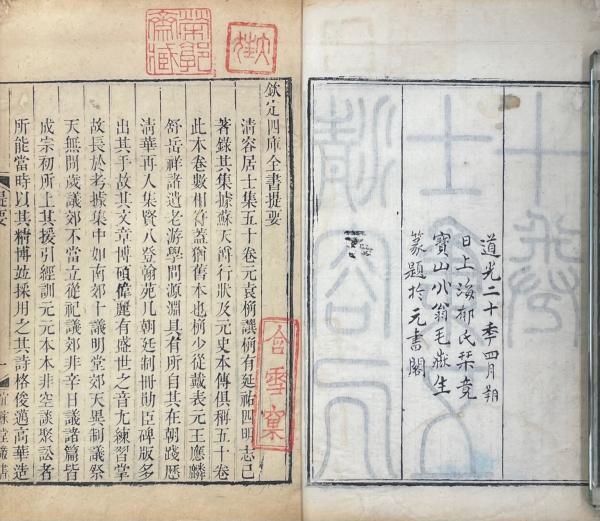 道光二十季四月朔
日上海郁氏栞竟
寶山小翁毛嶽生
篆題於元書閣
欽定四庫全書提要
清容居士集五十卷元袁桷譔桷有延祐四明志已
著錄其集據蘇天爵行狀及元史本傳俱稱五十卷
此本卷數相符蓋猶舊本也桷少從戴表元王應麟
舒岳祥諸遺老游學問源淵具有所自其在朝踐歷
清華再入集賢八登翰苑凡朝廷制冊勛臣碑版多
出其手故其文章博碩偉麗有盛世之音尢練習掌
故長於考據集中如南郊十議明堂郊天異制議祭
天無閒歲議郊不當立從祀議郊非辛日議諸篇皆
成宗初所上其援引經訓元元本本非空談聚訟者
所能當時以其精博竝採用之其詩格俊邁高華造
提要
一
宜稼堂叢書